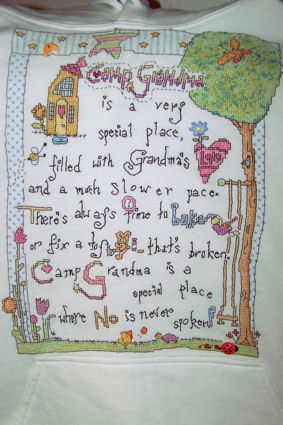 Camp Grandma
is a very
special place,
filled with Grandma's
Love
and a much slower pace.
There's always time to Bake
or fix a toy that's broken.
Camp Grandma is a
special place
where No is never
spoken!